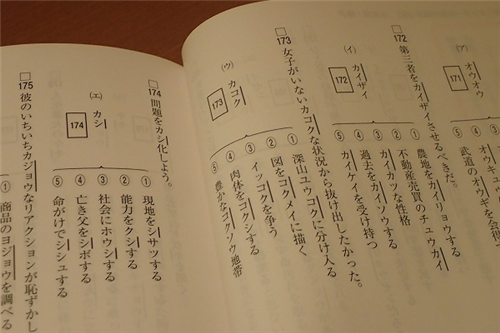 (ア)
オウオウ
171
④ オウキュ
⑤ 武道のオウギを会得
□172 第三者をカイザイさせるべきだ。
(イ)
カイザイ
172
① 農地をカイリョウする
② 不動産売買のチュウカイ
③ カイカツな性格
④ 過去をカイソウする
⑤ カイケイを受け持つ
□173 女子がいないカコクな状況から抜け出したかった。
(ウ)
カコク
173
① 深山ユウコクに分け入る
② 図をコクメイに描く
③ イッコクを争う
④ 肉体をコクシする
⑤ 豊かなコクソウ地帯
□174 問題をカシ化しよう。
(エ)
カシ
174
① 現地をシサツする
② 能力をクシする
③ 社会にホウシする
④ 亡き父をシボする
⑤ 命がけでシシュする
□175 彼のいちいちカジョウなリアクションが恥ずかし
① 商品のヨジョウを調べる